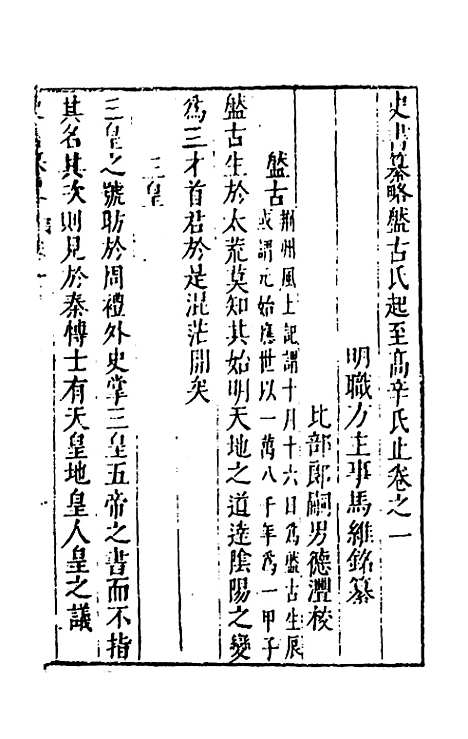 史書纂略盤古氏起至高辛氏止卷之一
明職方主事馬維銘纂
比部郎嗣男德灃校
盤古
荊州風土記謂十月十六日為盤古生辰
或謂元始應世以一萬八千年為一甲子
盤古生於太荒莫知其始明天地之道達陰陽之變
為三才首君於是混茫開矣
三皇
三皇之號昉於周禮外史掌三皇五帝之書而不指
其名其次則見於秦博士有天皇地皇人皇之議